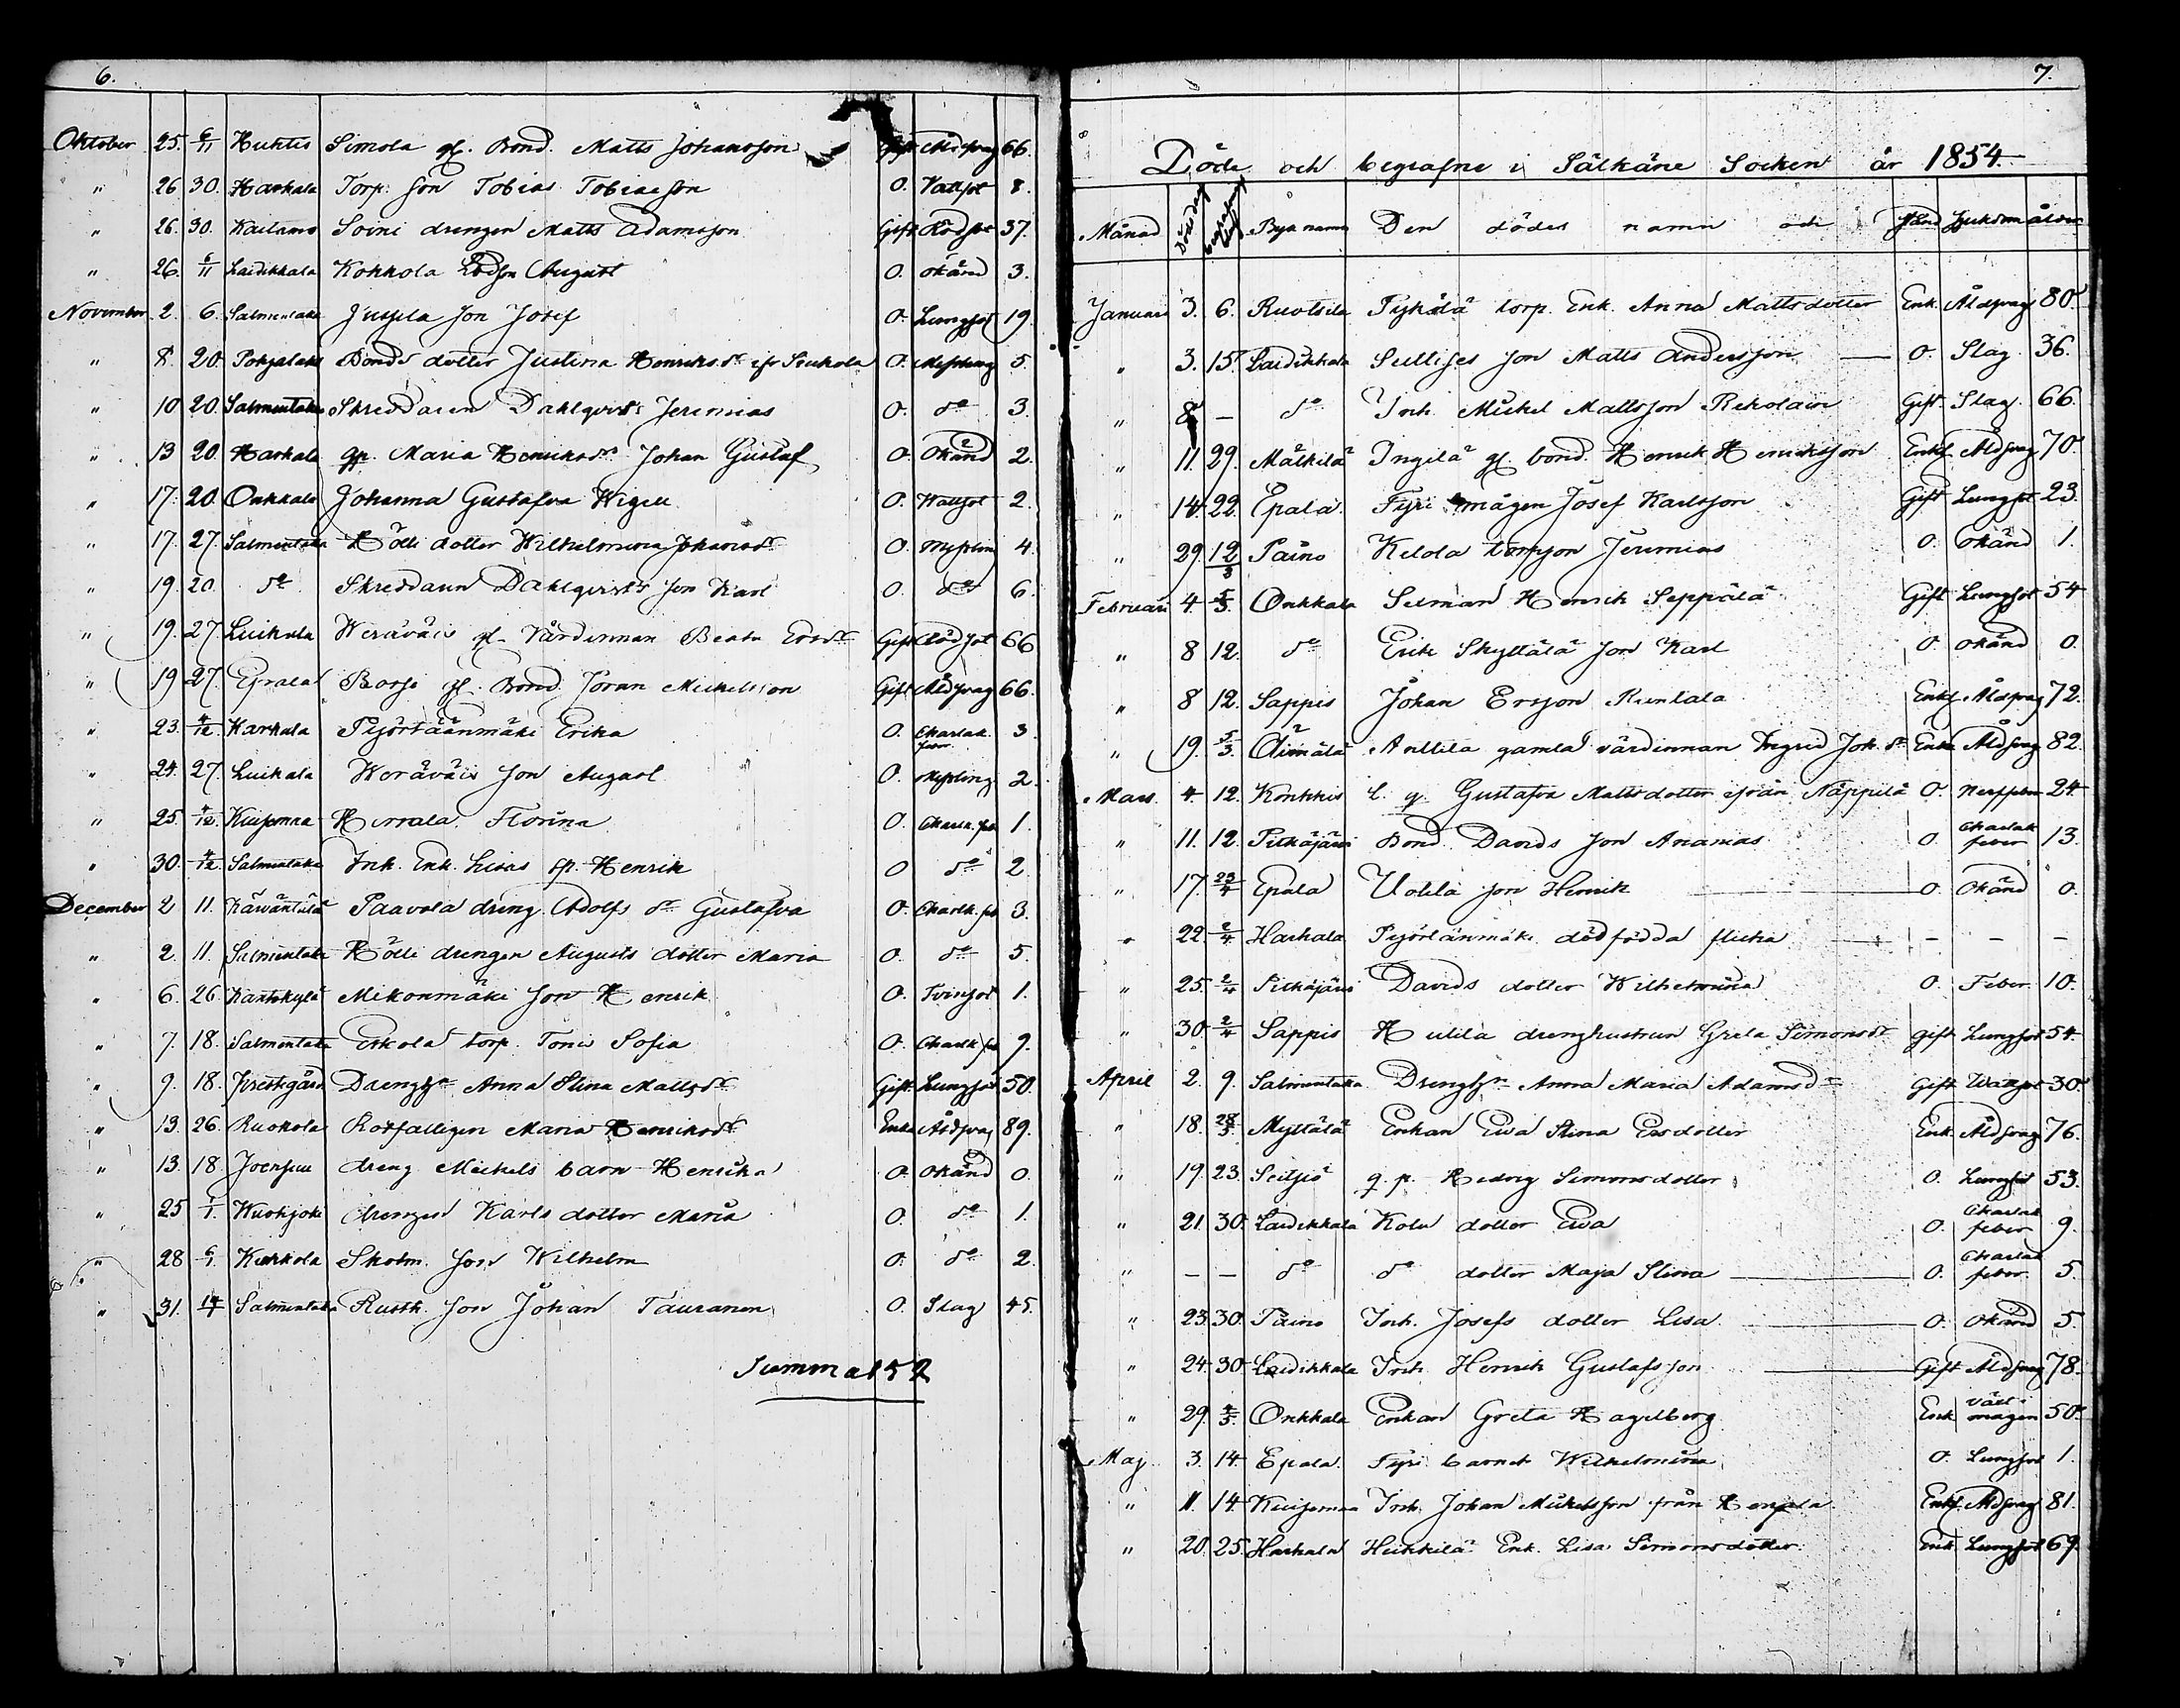 6.
Oktober 25. 6/11 Huhtis Simola gl. Bond. Matts Johansson Gift Åldrsvag 66.
" 26 30. Harhala Torp. Son Tobias Tobiasson O. Vattsot 8.
" 26. 30. Kailamo Soini drengen Matts Adamsson Gift Rödsot 37.
" 26. 6/11 Laidikkala Kokkola Son August O. Okänd 3.
November 2. 6. Salmentaka Jussila Son Josef O. Lungsot 19.
" 8. 20. Pohjalaks Bonds dotter Justina Henriksdr O. Messling 5.
" 10 20. Salmentaka Skreddaren Dahlqvists Jeremias O. do 3.
" 13 20. Harhala qp. Maria Henriksdrs Johan Gustaf O. Okänd 2.
" 17. 20. Onkkala Johanna Gustafva Wigell O. Wattsot 2.
" 17. 27. Salmentaka Hölli dotter Wilhelmina Johansdr O. Messling 4.
" 19. 20. do Skreddaren Dahlqvists Son Karl O. do 6.
" 19. 27. Luikala Weräväis gl. Värdinnan Beata Ersdr Gift Rödsot 66
" 19 27. Epaala Borsi gl. Bond. Jöran Mickelsson Gift Åldsvag 66.
" 23. 4/12 Harhala Pyörtäänmäki Erika O. Charlak. feber 3.
" 24. 27. Luikala Weräväis Son August O. Messling 2.
" 25. 4/12. Kuisemaa Hirvala Florina O. Charlk. feb 1.
" 30. 4/12. Salmentaka Inh. Enk. Lisas sp. Henrik O do 2.
December 2 11. Käiväntilä Paavola dreng. Adolfs dr Gustafva O. Charlk. feb 3.
" 2. 11. Salmentaka Hölli drengen Augusts dotter Maria O. do 5.
" 6. 26. Kantokylä Mikonmäki Son Henrik O. Tvinsot 1.
" 7. 18. Salmentaka Eskola torp. Tonis Sofia O. Charlk. feb 9.
" 9. 18. Prestegård Drenghn Anna Stina Mattsdr Gift Lungsot 50.
" 13. 26. Ruokola Rotfattigen Maria Henriksdr Enka Åldsvag 89.
" 13. 18. Joensuu dreng Mickels barn Henrika O. Okänd 0.
" 25 1/1. Kuohjoki drengens Karls dotter Maria O. do 1.
" 28 6/1. Kuokola Skolm. Son Wilhelm O. do 2.
" 31. 14/1 Salmentaka Rusth. Son Johan Tauranen O. Slag 45.
Summa 152
7.
Döde och begrafne i Sälkäne Socken år 1854
Månad Dödsdag begrafning dag Bya namn Den dödes namn och Stånd Sjukdom ålder
Januari 3. 6. Ruotsila Pykälä torp. Enk. Anna Mattsdotter Enk. Åldsvag 80.
" 3. 15. Laidikkala Sullises Son Matts Andersson O. Slag 36.
" 8 — do Inh. Mickel Mattsson Rekolain Gift Slag. 66.
" 11. 29. Mälkilä Ingilä gl. bond. Henrik Henriksson Enkl. Åldsvag 70.
" 14. 22. Epala. Fyri mågen Josef Karlsson Gift Lungsot 23.
" 29. Päino Kelola torpson Jeremias O. Okänd 1.
Februari 4. 5/3. Onkkala Selman Henrik Seppälä Gift Lungsot 54
" 8 12. do Erik Skyttälä Son Karl O. Okänd 0.
" 8 12. Sappis Johan Ersson Runtala Enkl Åldsvag 72.
" 19. 5/3. Äimälä Anttila gamla värdinnan Ingrid Joh. dr Enka Åldsvag 82.
Mars. 4. 12. Konkkis t. q. Gustafva Mattsdotter ifrån Näppilä O. Nerffeber 24.
" 11. 12. Pitkäjärvi Bond. Davids Son Ananias O. Charlak feber 13.
" 17. 23/4 Epala Uotila Son Henrik O. Okänd 0.
" 22. 2/4. Harhala Pyörtänmäki dödfödda flicka — — —
" 25. 2/4 Pitkäjärvi Davids dotter Wilhelmina O. Feber. 10.
" 30. 2/4 Sappis Hutila drenghustrun Greta Simonsdr gift Lungsot 54.
April 2. 9. Salmentaka Drenghn Anna Maria Adamsdr Gift Wattsot 30.
" 18. 28/5. Myttälä Enkan Eva Stina Ersdotter Enk. Åldsvag 76.
" 19. 23. Seitsiö q. p. Hedvig Simonsdotter O. Lungsot 53.
" 21. 30. Laidikkala Kolu dotter Eva O. Charlak feber 9.
" — — do do dotter Maja Stina O. Charlak feber. 5.
" 23. 30. Päino Inh. Josefs dotter Lisa O. Okänd 5.
" 24. 30. Laidikkala Inh. Henrik Gustafsson Gift Åldsvag 78.
" 29. 4/5. Onkkala Enkan Greta Hagelberg Enk. värk i magen 50.
Maj 3. 14. Epala. Fyri barnet Wilhelmina O. Lungsot 1.
" 11. 14. Kuisemaa Inh. Johan Mickelsson från Hengala Enkl. Åldsvag 81.
" 20. 25. Harhala Heikkilä Enk. Lisa Simonsdotter. Enk Lungsot 69.